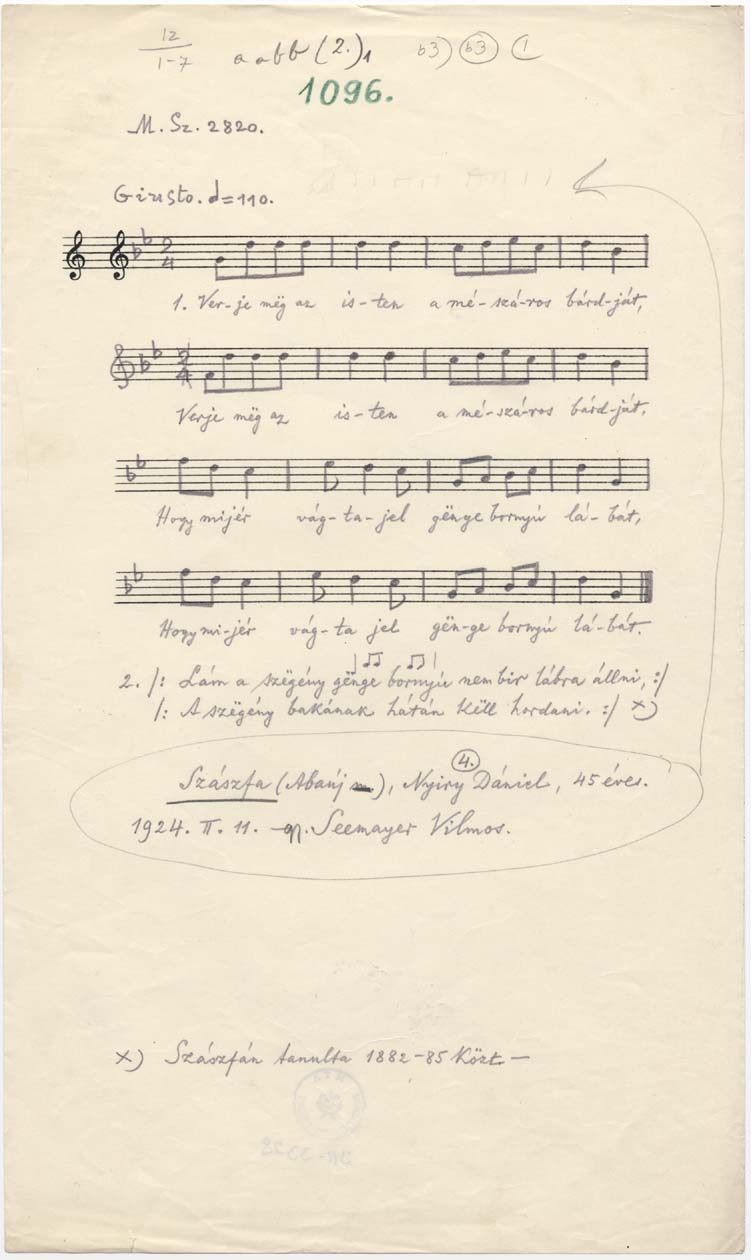 12
1-7
a a b b (2.)1 b3) (b3) (1
1096.
M. Sz. 2820.
Giusto. d=110.
2
4
1. Ver-je mëg az is-ten a mé-szá-ros bárd-ját,
2
4
Verje mëg az is-ten a mé-szá-ros bárd-ját,
Hogy mijér vág-ta-jel gënge bornyú lá-bát,
Hogy mi-jér vág-ta jel gën-ge bornyú lá-bát.
2. /: Lám a szëgény gënge bornyú nem bir lábra állni, :/
/: A szëgény bakának hátán këll hordani. :/ x)
4.
Szászfa (Abaúj m.), Nyiry Dániel, 45 éves.
1924. II. 11. gy. Seemayer Vilmos.
x) Szászfán tanulta 1882-85 közt. —